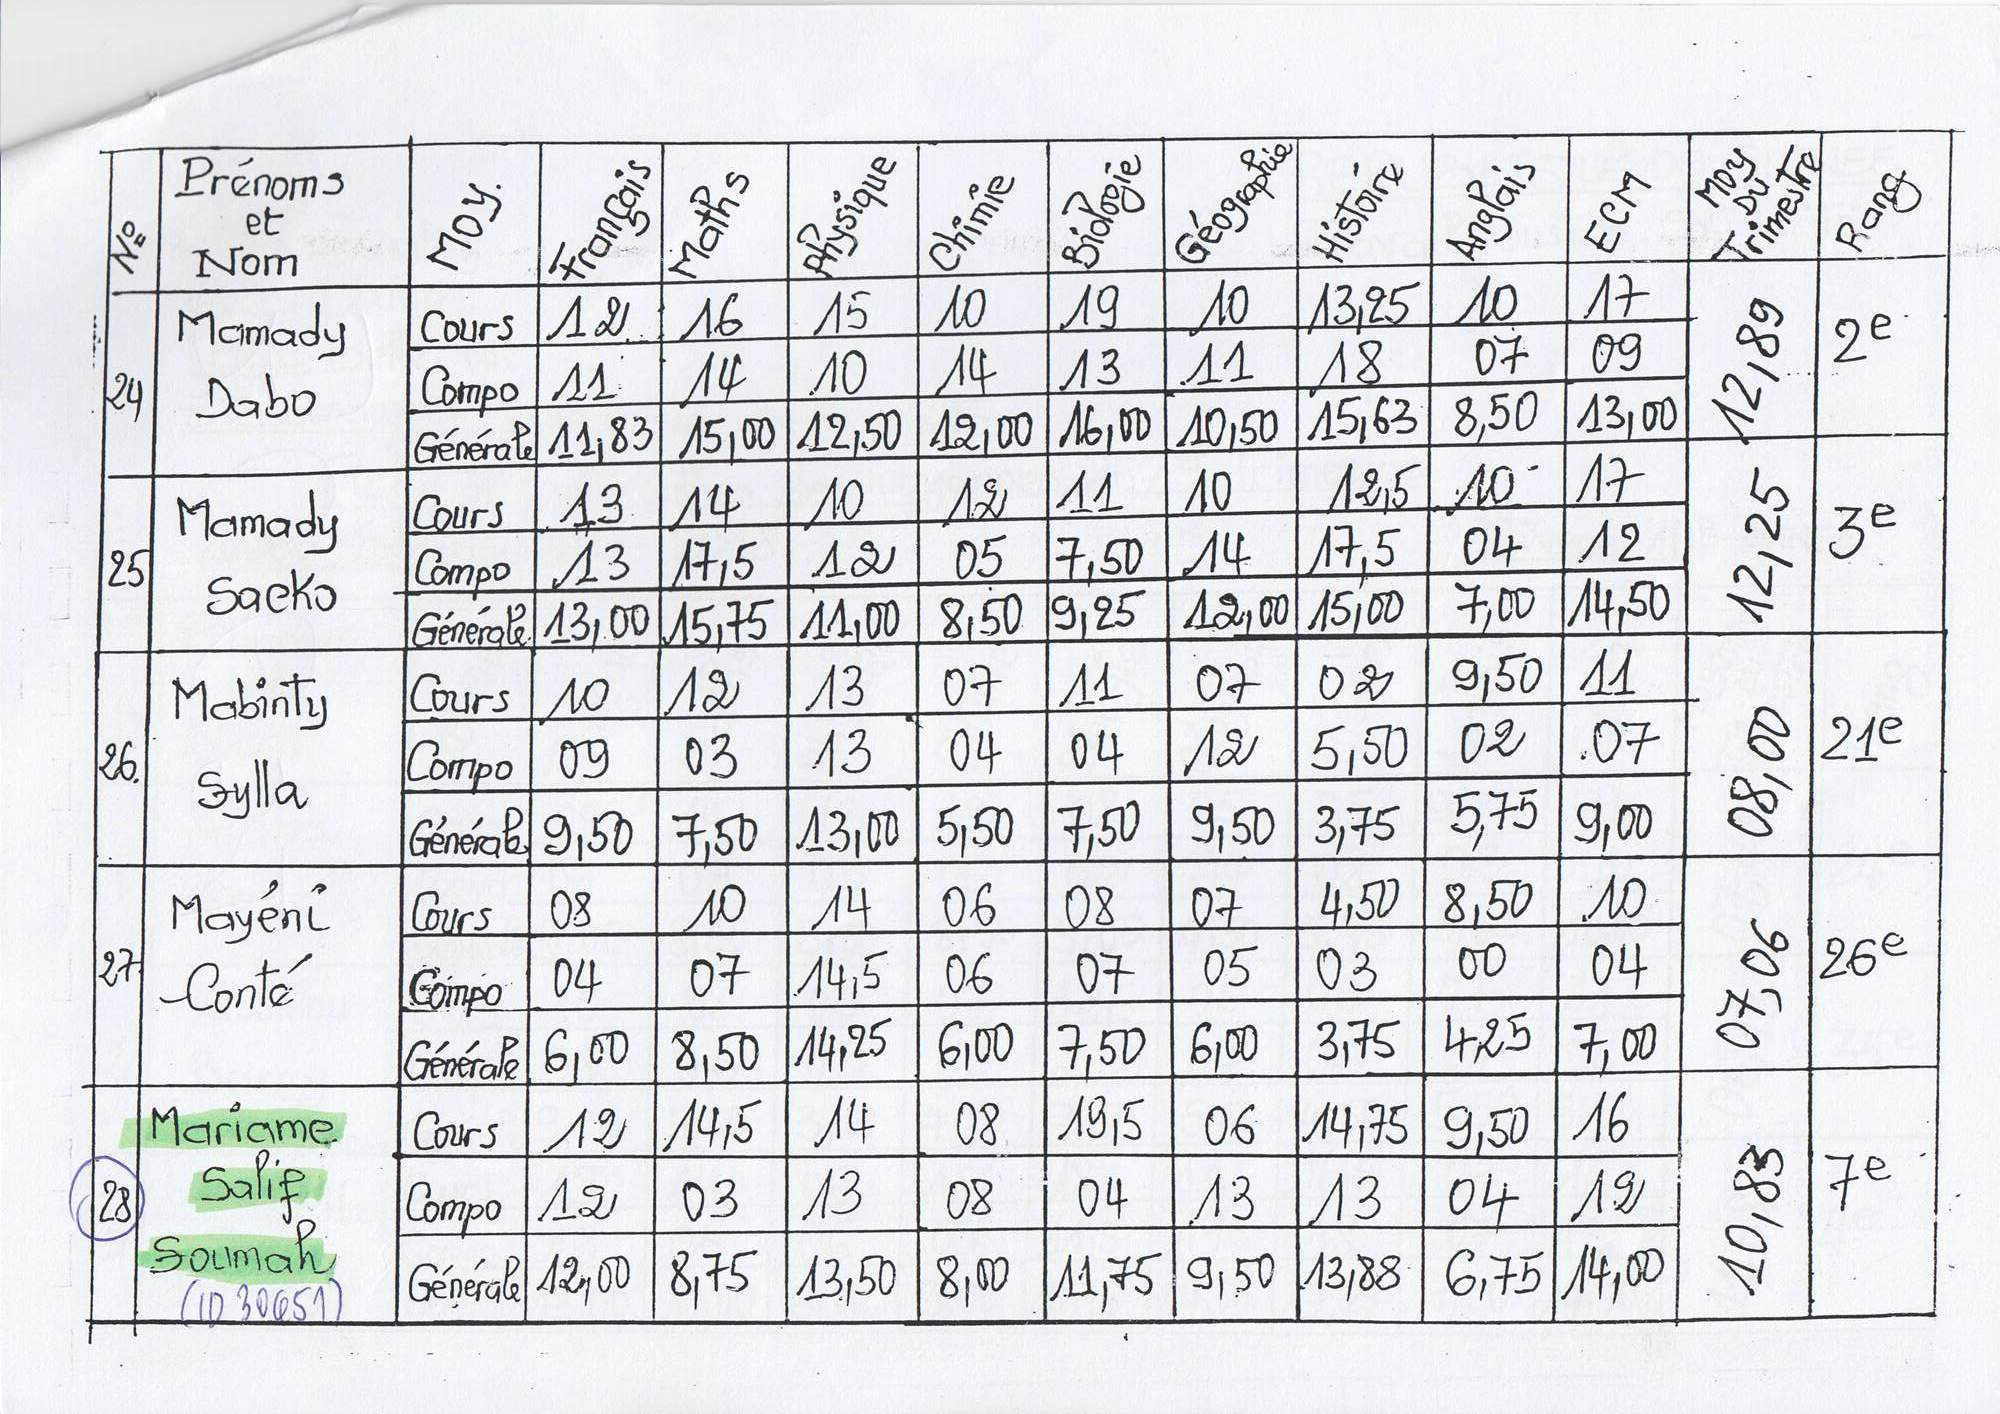 N° Prénoms et Nom Moy. Français Maths Physique Chimie Biologie Géographie Histoire Anglais ECM Moy Du Trimestre Rang
24 Mamady Dabo 12,89 2e
Cours 12 16 15 10 19 10 13,25 10 17
Compo 11 14 10 14 13 11 18 07 09
Générale 11,83 15,00 12,50 12,00 16,00 10,50 15,63 8,50 13,00
25 Mamady Sacko 12,25 3e
Cours 13 14 10 12 11 10 12,5 10 17
Compo 13 17,5 12 05 7,50 14 17,5 04 12
Générale 13,00 15,75 11,00 8,50 9,25 12,00 15,00 7,00 14,50
26. Mabinty Sylla 08,00 21e
Cours 10 12 13 07 11 07 02 9,50 11
Compo 09 03 13 04 04 12 5,50 02 07
Générale 9,50 7,50 13,00 5,50 7,50 9,50 3,75 5,75 9,00
27 Mayéni Conté 07,06 26e
Cours 08 10 14 06 08 07 4,50 8,50 10
Compo 04 07 14,5 06 07 05 03 00 04
Générale 6,00 8,50 14,25 6,00 7,50 6,00 3,75 4,25 7,00
28 Mariame Salif Soumah (ID 30651) 10,83 7e
Cours 12 14,5 14 08 19,5 06 14,75 9,50 16
Compo 12 03 13 08 04 13 13 04 12
Générale 12,00 8,75 13,50 8,00 11,75 9,50 13,88 6,75 14,00